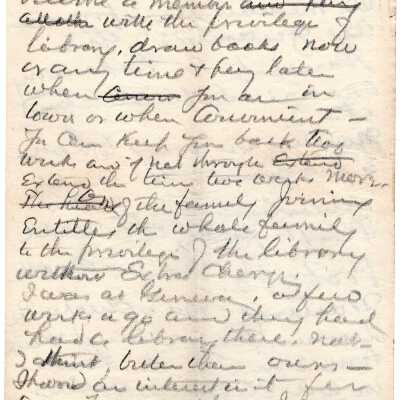 become a member and they
with the privilege of
library, draw books now
or any time & pay later
when you are in
town or when convenient —
You can keep your book two
weeks and if not through extend
Extend the time two weeks more.
The Head of the family joining
Entitles the whole family
to the privilege of the library
without Extra Charge.
I was at Geneva, a few
weeks ago and they had
had a library there, not
I think, better than ours —
I had an interest in it for